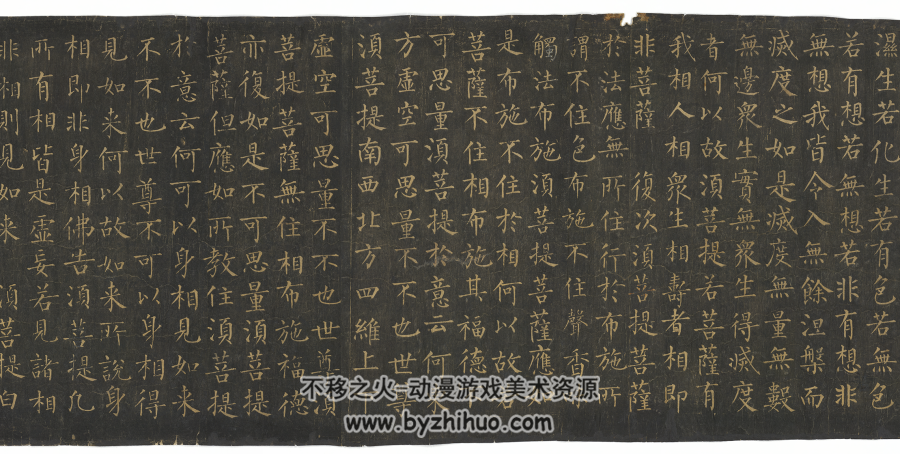 濕生若化生若有色若無色
若有想若無想若非有想非
無想我皆令入無餘涅槃而
滅度之如是滅度無量無數
無邊眾生實無眾生得滅度
者何以故須菩提若菩薩有
我相人相眾生相壽者相即
非菩薩 復次須菩提菩薩
於法應無所住行於布施所
謂不住色布施不住聲香
觸法布施須菩提菩薩應
是布施不住於相何以故
菩薩不住相布施其福德
可思量須菩提於意云何
方虛空可思量不不也世尊
須菩提南西北方四維上
虛空可思量不不也世尊須
菩提菩薩無住相布施福德
亦復如是不可思量須菩提
菩薩但應如所教住須菩提
於意云何可以身相見如来
不不也世尊不可以身相得
見如来何以故如来所說身
相即非身相佛告須菩提凡
所有相皆是虛妄若見諸相
非相則見如来 須菩提白
不移之火-动漫游戏美术资源
www.byzhihuo.com